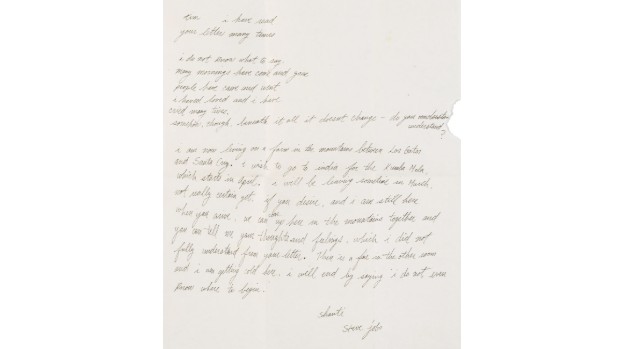 tim i have read
your letter many times
i do not know what to say.
many mornings have come and gone
people have came and went
i have loved and i have
cried many times.
somehow, though, beneath it all it doesnt change - do you
understand?
i am now living on a farm in the mountains between Los Gatos
and Santa Cruz. i wish to go to india for the Kumba Mela,
which starts in April. i will be leaving sometime in March,
not really certain yet. if you desire, and i am still here
when you arrive, we can be up here in the mountains together and
you can tell me your thoughts and feelings, which i did not
fully understand from your letter. There is a fire in the other room
and i am getting cold here. i will end by saying i do not even
know where to begin.
shanti
steve jobs